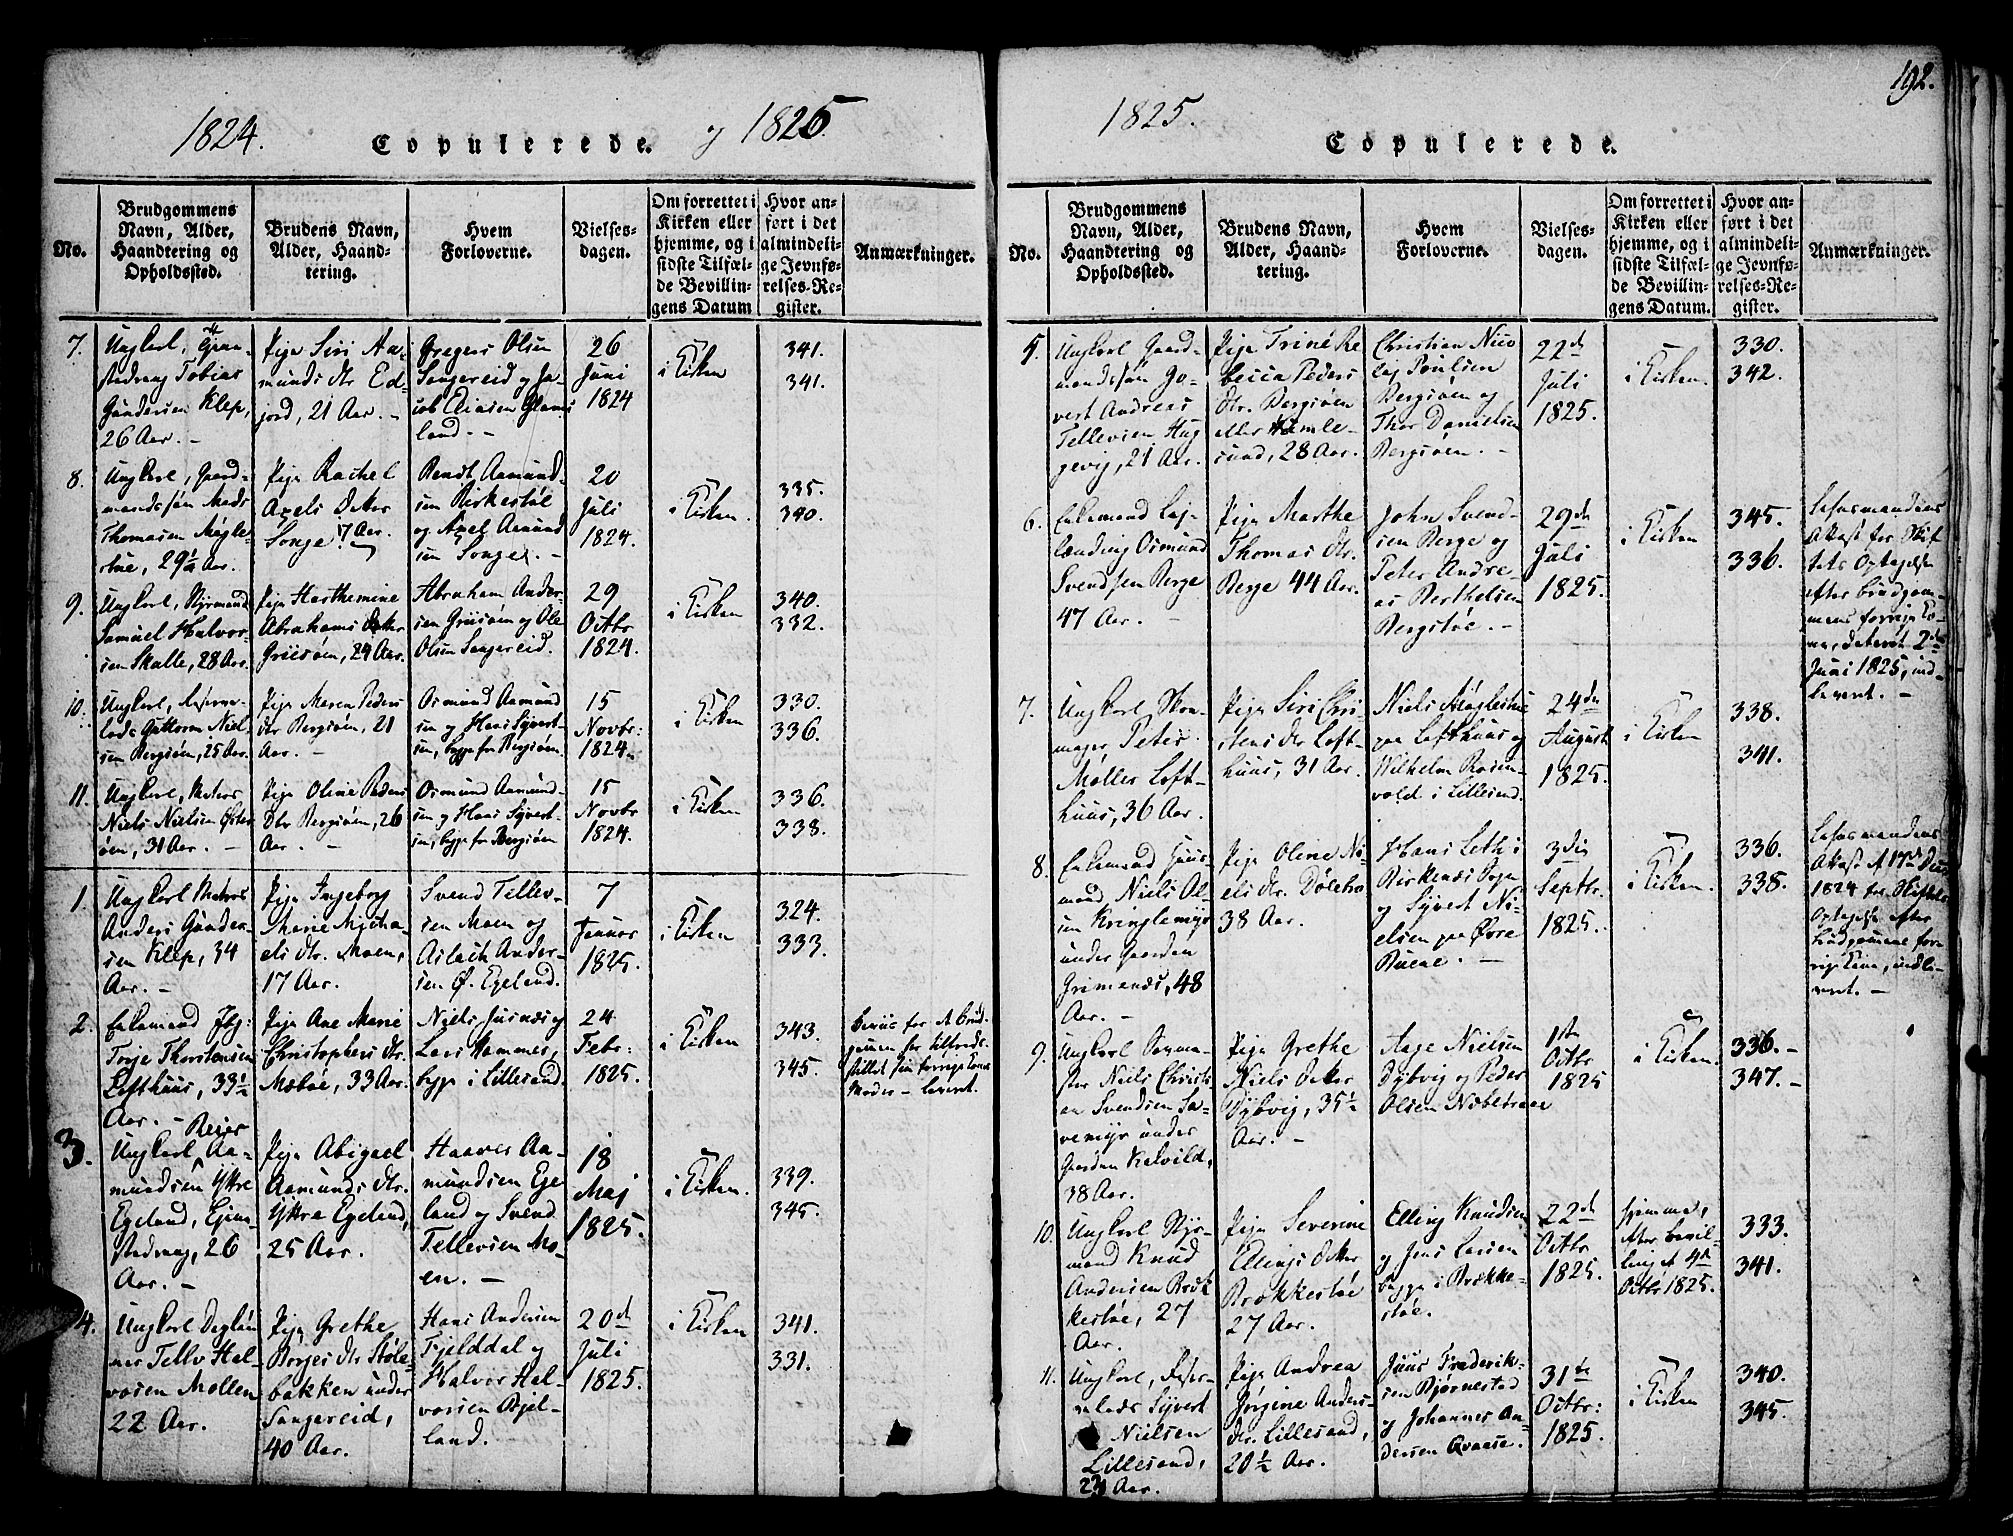 192.
1824.
Copulerede.
og 1825
1825.
Copulerede.
No.
Brudgommens
Navn, Alder,
Haandtering og
Opholdssted.
Brudens Navn,
Alder, Haand-
tering.
Hvem
Forloverne.
Vielses-
dagen.
Om forrettet i
Kirken eller
hjemme, og i
sidste Tilfæl-
de Bevillin-
gens Datum
Hvor an-
ført i det
almindeli-
ge Jevnfø-
relses-Re-
gister.
Anmærkninger.
7.
Ungkarl, Tjene-
stedreng Tobias
Gundersen Klep,
26 Aar. –
Pige Siri Aa-
munds dtr. Ed-
jord, 21 Aar. –
Gregers Olsen
Sangereid og Ja-
cob Eliasen Glams
land. –
26
Juni
1824
i Kirken
341.
341.
8.
Ungkarl, Gaard-
mandssøn Mads
Thomasen Møgle-
stue, 29½ Aar.
Pige Rachel
Axels Datter
Songe 17 Aar.
Bendt Aamund-
sen Birkestøl
og Axel Aamund
sen Songe. –
20
Juli
1824.
i Kirken.
335.
340.
9.
Ungkarl, Styrmand
Samuel Halvor-
sen Skalle, 28 Aar.
Pige Harthemine
Abrahams Datter
Griisøen, 24 Aar.
Abraham Ander-
sen Griisøen og Ole
Olsen Sangereid.
29
Octbr
1824.
i Kirken
340.
332.
10.
Ungkarl,
Guttorm Niel-
sen Bergsøen, 25 Aar.
Pige Maren Peders
dtr Bergsøen, 21
Aar. –
Osmund Aamund
sen og Hans Syvert-
sen, begge fra Bergsøen.
15
Novbr:
1824.
i Kirken
330.
336.
11.
Ungkarl, Matros
Niels Nielsen Øster
øen, 31 Aar. –
Pige Oline Peders
Dtr Bergsøen, 26
Aar. –
Osmund Aamund-
sen og Hans Syvert-
sen, begge fra Bergsøen
15
Novbr
1824.
i Kirken
336.
338.
1.
Ungkarl Matros
Anders Gunder-
sen Klep, 34
Aar. –
Pige Ingeborg
Marie Micha-
els dtr. Moen,
17 Aar.
Svend Tellev-
sen Moen og
Aslach Ander-
sen Ø. Egeland.
7
Januar
1825.
i Kirken
324.
333.
2.
Enkemand
Terje Thorstensen
Lofthuus, 33½
Aar. –
Pige Ane Marie
Christophers dtr.
Mæbøe, 33 Aar.
Niels Jusnæs og
Lars Hammer,
begge i Lillesand.
24
Febr:
1825.
i Kirken
343.
345.
Beviis for at Brud-
gommen har tilfreds-
stillet sin forrige Kones
Moder – leveret.
3.
Reier
Ungkarl Aa-
mundsen Yttre
Egeland, Tjene-
stedreng, 26
Aar. –
Pige Abigael
Aamunds dtr.
Yttre Egeland,
25 Aar.
Haaver Aa-
mundsen Ege
land og Svend
Tellevsen Mo-
en. –
18
Maj
1825.
i Kirken.
339.
345.
4.
Ungkarl Dagløn
ner Tellv Hal-
vorsen Mollen
22 Aar.
Pige Grethe
Børges dtr. Støle-
bakken under
Sangereid,
40 Aar.
Hans Andersen
Fjelddal og
Halvor Hal-
vorsen Bjel-
land.
20de
Juli
1825.
i Kirken
341.
331.
No.
Brudgommens
Navn, Alder,
Haandtering og
Opholdssted.
Brudens Navn,
Alder, Haand-
tering.
Hvem
Forloverne.
Vielses-
dagen.
Om forrettet i
Kirken eller
hjemme, og i
sidste Tilfæl-
de Bevillin-
gens Datum.
Hvor an-
ført i det
almindeli-
ge Jevnfø-
relses-Re-
gister.
Anmærkninger.
5.
Ungkarl Gaard-
mandssøn Go-
vert Andreas
Tellevsen Hag-
gevig, 21 Aar.
Pige Trine Re
becca Peders
dtr. Bergsøen
eller Hamle-
sund, 28 Aar.
Christian Nico
laj Poulsen
Bergsøen og
Thor Danielsen
Bergsøen. –
22de
Juli
1825.
i Kirken.
330.
342.
6.
Enkemand Lej-
lænding Osmund
Svendsen Berge
47 Aar. –
Pige Marthe
Thomas dtr.
Berge 44 Aar.
John Svend-
sen Berge og
Peter Andre-
as Berthelsen
Bergstøe. –
29de
Juli
1825.
i Kirken
345.
336.
Lensmandens
Attest for Skif
tets Optagelse
efter Brudgom-
mens forrige Ko-
ne, dateret 2den
Juni 1825, ind-
leveret. –
7.
Ungkarl Skoe-
mager Peter
Møller Loft-
huus, 36 Aar.
Pige Siri Chri-
stens dtr Loft-
huus, 31 Aar.
Niels Møglestue
paa Lofthuus og
Wilhelm Rosen-
vold i Lillesand.
24de
August
1825.
i Kirken
338.
341.
8.
Enkemand Huus-
mand, Niels Ol-
sen Kringlemyr
under Gaarden
Grimenæs, 48
Aar. –
Pige Oline Ni-
els dtr. Dølehei
38 Aar.
Hans Leth i
Birkenæs Sogn
og Syvert Ni-
elsen paa Øvre
Ruene. –
3die
Septbr.
1825.
i Kirken.
336.
338.
Lensmandens
Attest af 17de Decbr
1824 for Skiftets
Optagelse efter
Brudgommens for-
rige Kone, indle-
veret. –
9.
Ungkarl
Niels Christi
an Svendsen Sa-
vemyr under
Gaarden Kalvild,
38 Aar.
Pige Grethe
Niels Datter
Dybvig, 35½
Aar. –
Aage Nielsen
Dybvig og Peder
Olsen Nabetraae
1ste
Octbr
1825
i Kirken
336. –
347. –
10.
Ungkarl Styr-
mand Knud
Andersen Bræk
kestøe, 27
Aar.
Pige Severine
Ellings Datter
Brækkestøe
27 Aar.
Elling Knudsen
og Jens Larsen
begge i Brække-
støe.
22de
Octbr
1825.
hjemme,
efter Bevil-
ling af 4de
Octbr 1825.
333.
341.
11.
Ungkarl,
Syvert
Nielsen
Lillesand,
23 Aar.
Pige Andrea
Jørgine Anders-
dtr. Lillesand,
20½ Aar.
Juus Frederik-
sen Bjørnestad
og Johannes An-
dersen Qvaase.
31te
Octbr:
1825.
i Kirken
340.
345.